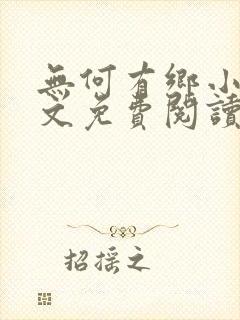 無何有鄉小
文免費閱讀
招摇之